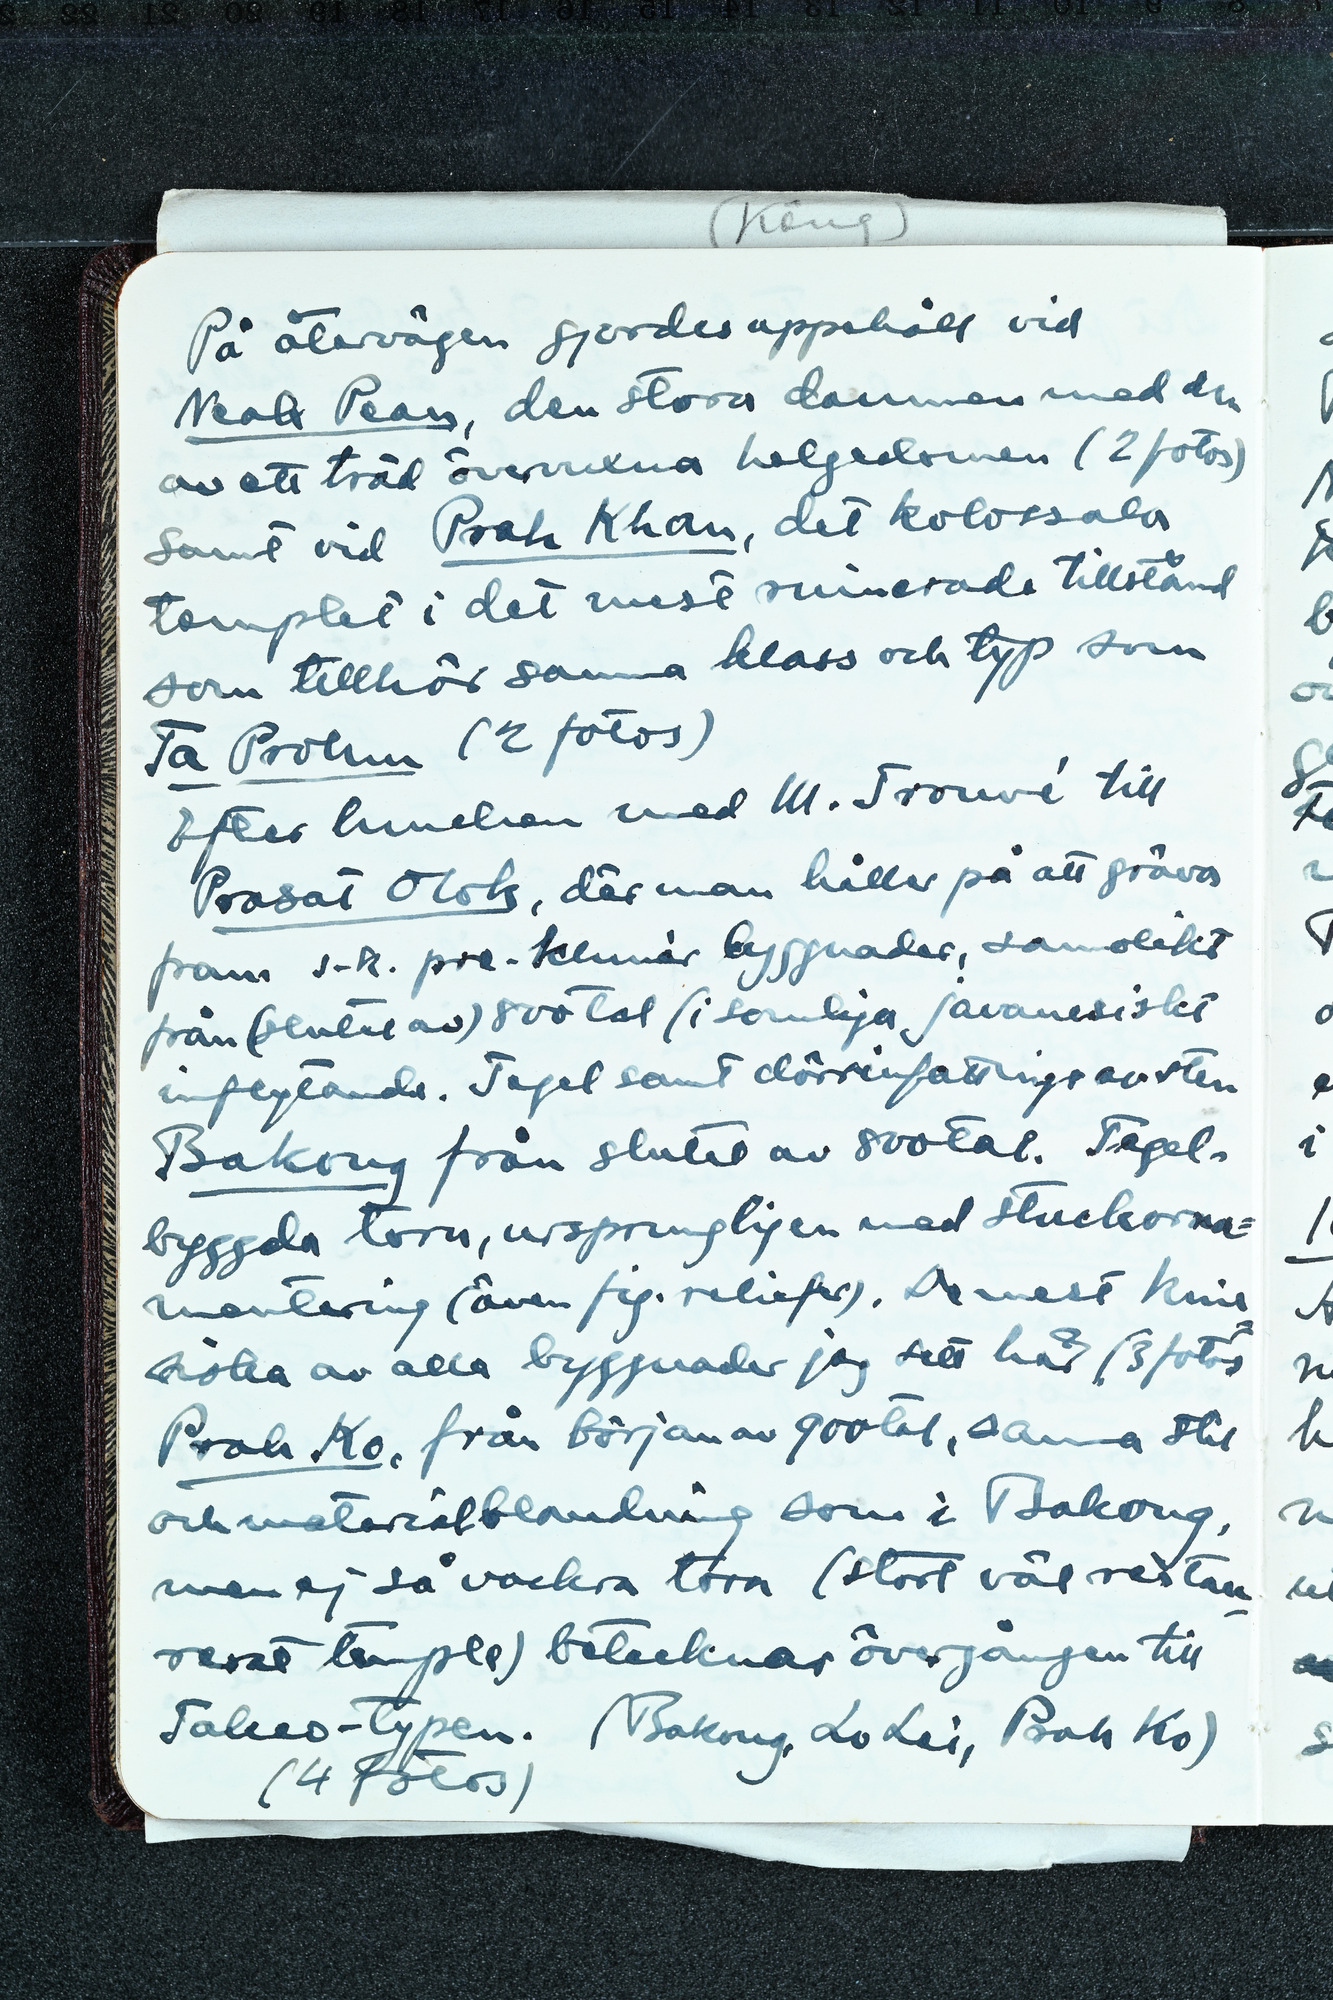 (Kong)
På återvägen gjordes uppehåll vid
Neak Pean, den stora dammen med den
av ett träd övervuxna helgedomen (2 fotos)
samt vid Prah Khan, det kolossala
templet i det mest ruinerade tillstånd
som tillhör samma klass och typ som
Ta Prohm (2 fotos)
Efter lunchen med M. Trouvé till
Prasat Olok, där man håller på att gräva
fram s.k. pre-khmèr byggnader, samolikt
från (slutet av) 800tal (i somliga javanesiskt
inflytande. Tegel samt dörrinfattningar av sten
Bakong från slutet av 800tal. Tegel-
byggda torn, ursprungligen med stuckorna=
mentering (även fig. reliefer). De mest kine
siska av alla byggnader jag sett här (3 fotos
Prah Ko, från början av 900tal, samma stil
och materialblandning som i Bakong,
men ej så vackra torn (stort väl restau
rerat tempel) betecknar övergången till
Takeo-typen. (Bakong, Lo Lei, Prah Ko)
(4 fotos)